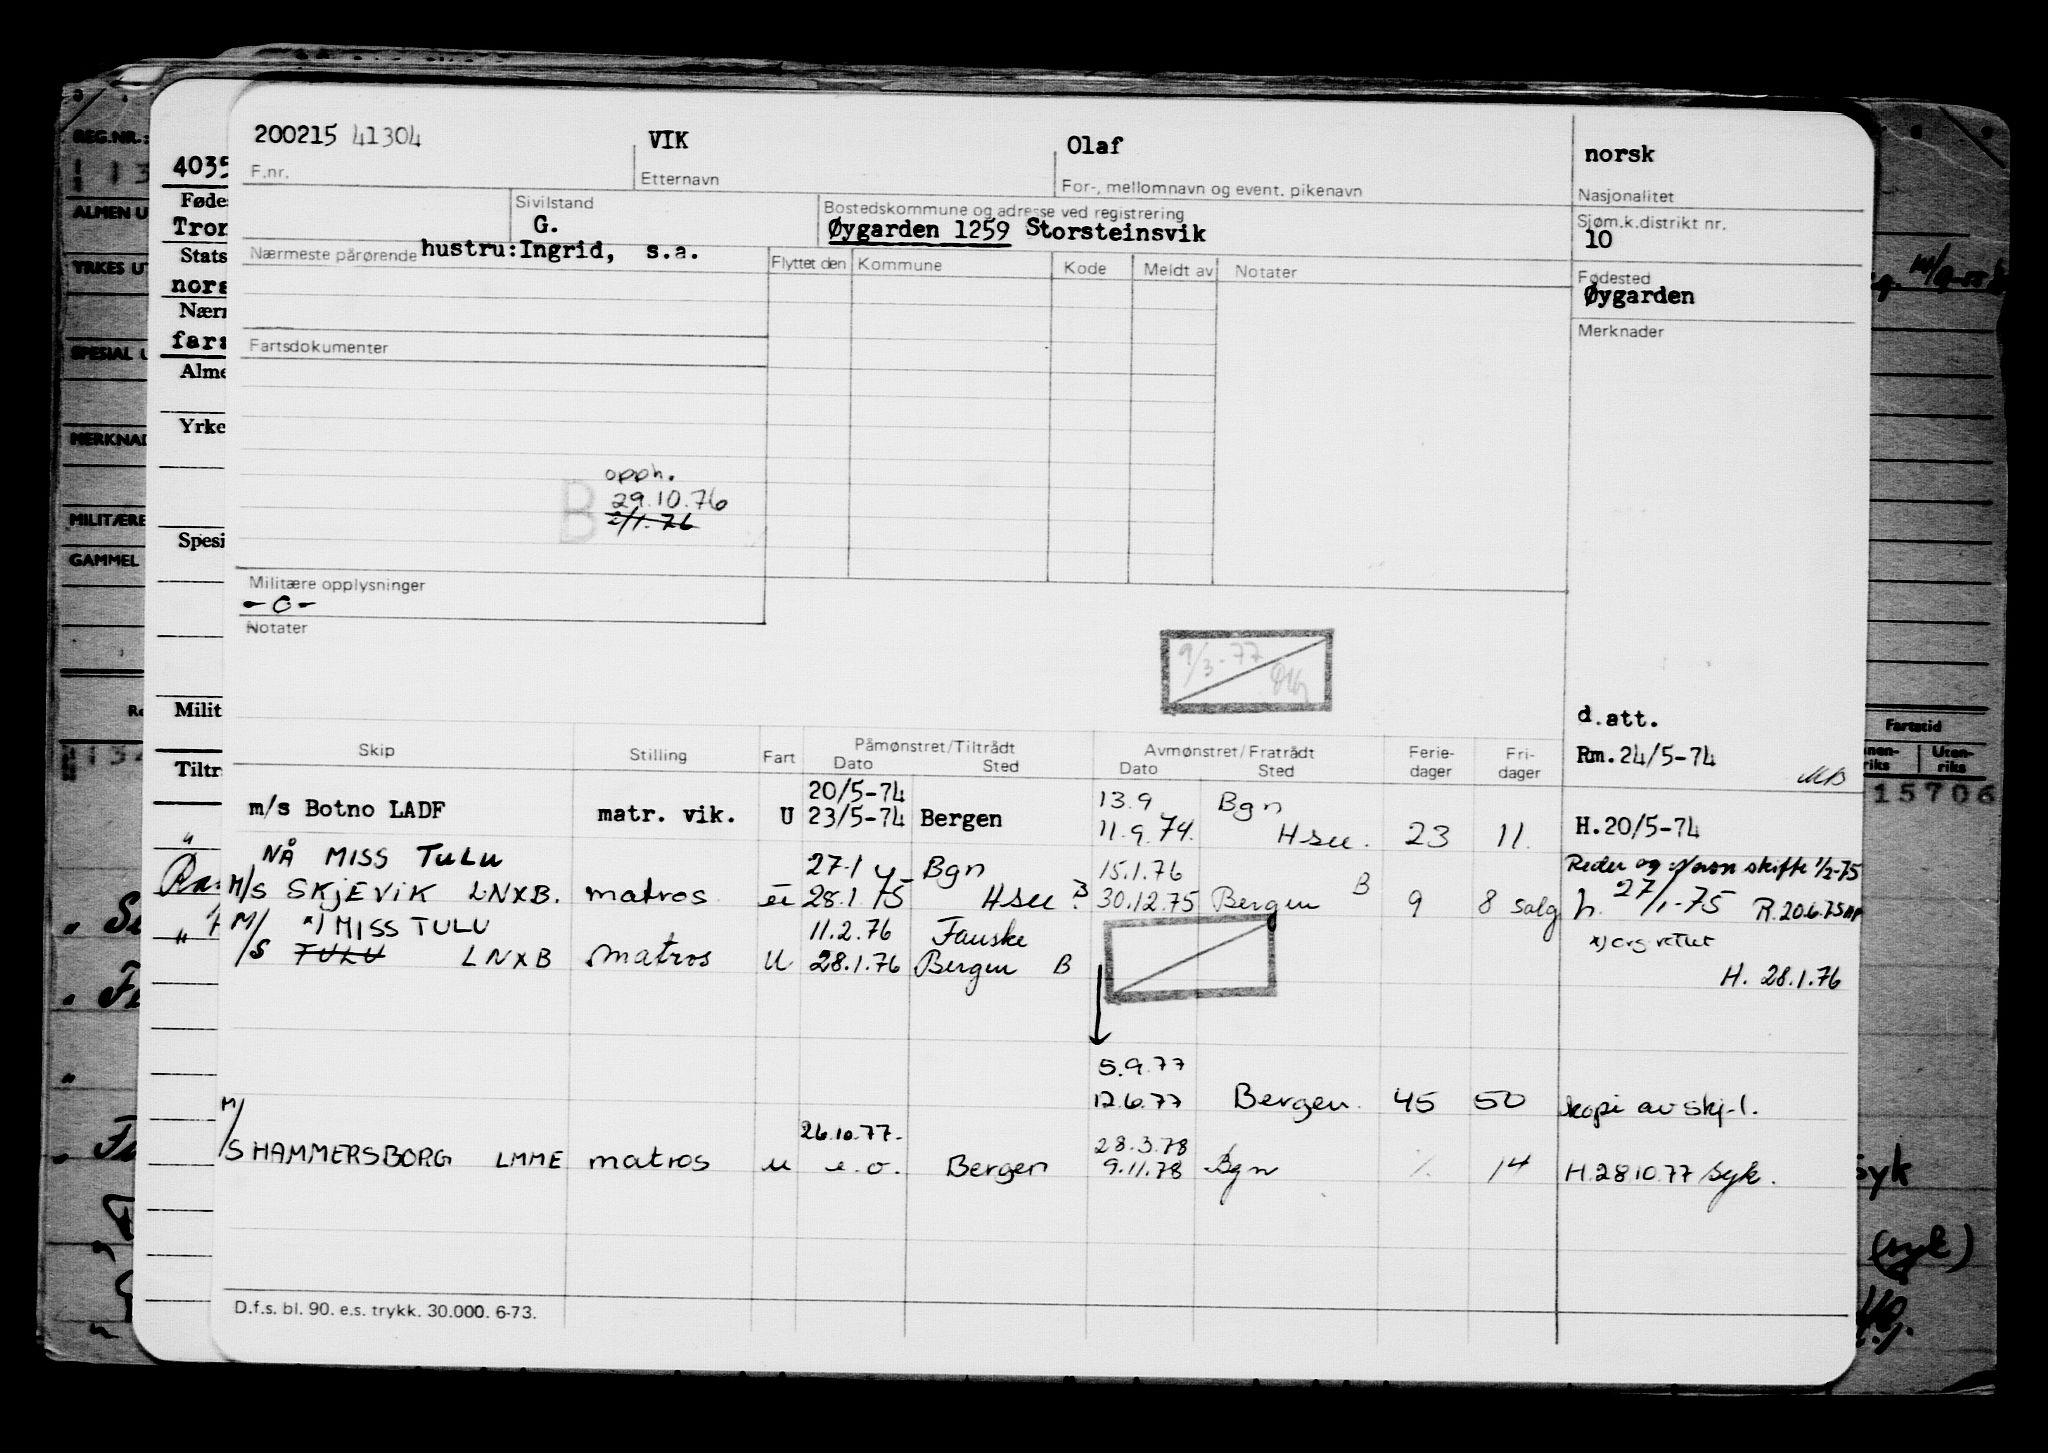 200215 41304 VIK Olaf norsk
F.nr. Etternavn For-, mellomnavn og event. pikenavn Nasjonalitet
Sivilstand Bostedskommune og adresse ved registrering Sjøm.k.distrikt nr.
G. Øygarden 1259 Storsteinsvik 10
Nærmeste pårørende hustru: Ingrid, s.a.
Flyttet den Kommune Kode Meldt av Notater Fødested
Øygarden
Fartsdokumenter Merknader
opph.
B 29.10.76
2/1.76
Militære opplysninger
- 0 -
Notater
9/3-77
d.att.
Skip Stilling Fart Påmønstret/Tiltrådt Avmønstret/Fratrådt Ferie- Fri- Rm.24/5-74
Dato Sted Dato Sted dager dager
20/5-74 13.9 Bgn
m/s Botno LADF matr. vik. U 23/5-74 Bergen 11.9.74. Hsu. 23 11. H.20/5-74
NÅ MISS TULU 27.1 Bgn 15.1.76 B Reder og skifte 1/2-75
M/S SKJEVIK LNXB. matros u 28.1.75 Hsu B 30.12.75 Bergen 9 8 salg h. 27/1-75 R.20.6.75
M/S x) MISS TULU 11.2.76 Fauske x) org rettet
TULU LNXB matros U 28.1.76 Bergen B H. 28.1.76
5.9.77
12.6.77 Bergen. 45 50 kopi av skj-l.
26.10.77. 28.3.78
M/S HAMMERSBORG LMME matros u e.o. Bergen 9.11.78 Bgn 14 H.28.10.77 /syk.
D.f.s. bl. 90. e.s. trykk. 30.000. 6-73.
REG.NR.:
4035
Føde
Tron
Stats
nors
Nærm
fars
Alme
Yrke
Spesi
Milit
Tiltr
ALMEN U
YRKES UT
SPESIAL U
MERKNAD
MILITÆRE
GAMMEL
Fartstid
Uten-
riks
15706
syk
(syk)